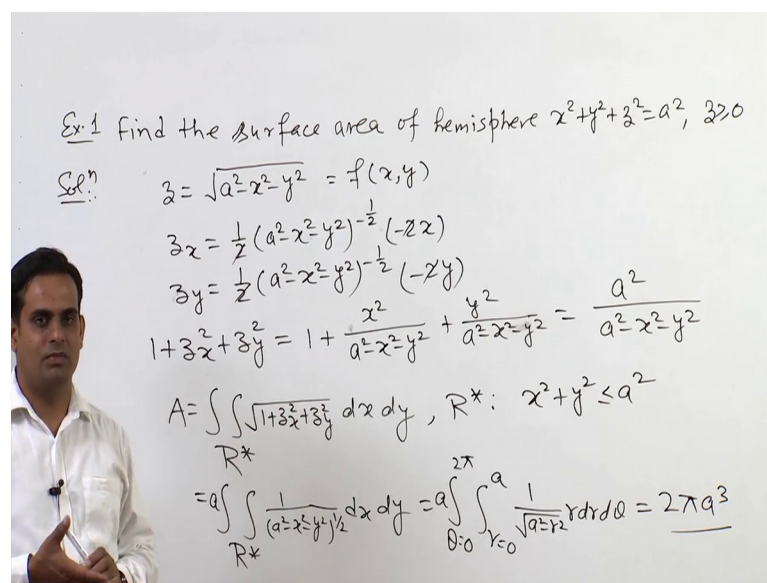 Ex.1 Find the surface area of hemisphere x²+y²+z²=a², z≥0
Solⁿ: z = √(a²-x²-y²) = f(x,y)
z_x = 1/2 (a²-x²-y²)^(-1/2) (-2x)
z_y = 1/2 (a²-x²-y²)^(-1/2) (-2y)
1+z_x²+z_y² = 1 + x²/(a²-x²-y²) + y²/(a²-x²-y²) = a²/(a²-x²-y²)
A = ∫∫_{R*} √(1+z_x²+z_y²) dx dy, R*: x²+y² ≤ a²
= a∫∫_{R*} 1/(a²-x²-y²)^(1/2) dx dy = a∫_{θ=0}^{2π} ∫_{r=0}^{a} 1/√(a²-r²) r dr dθ = 2πa³